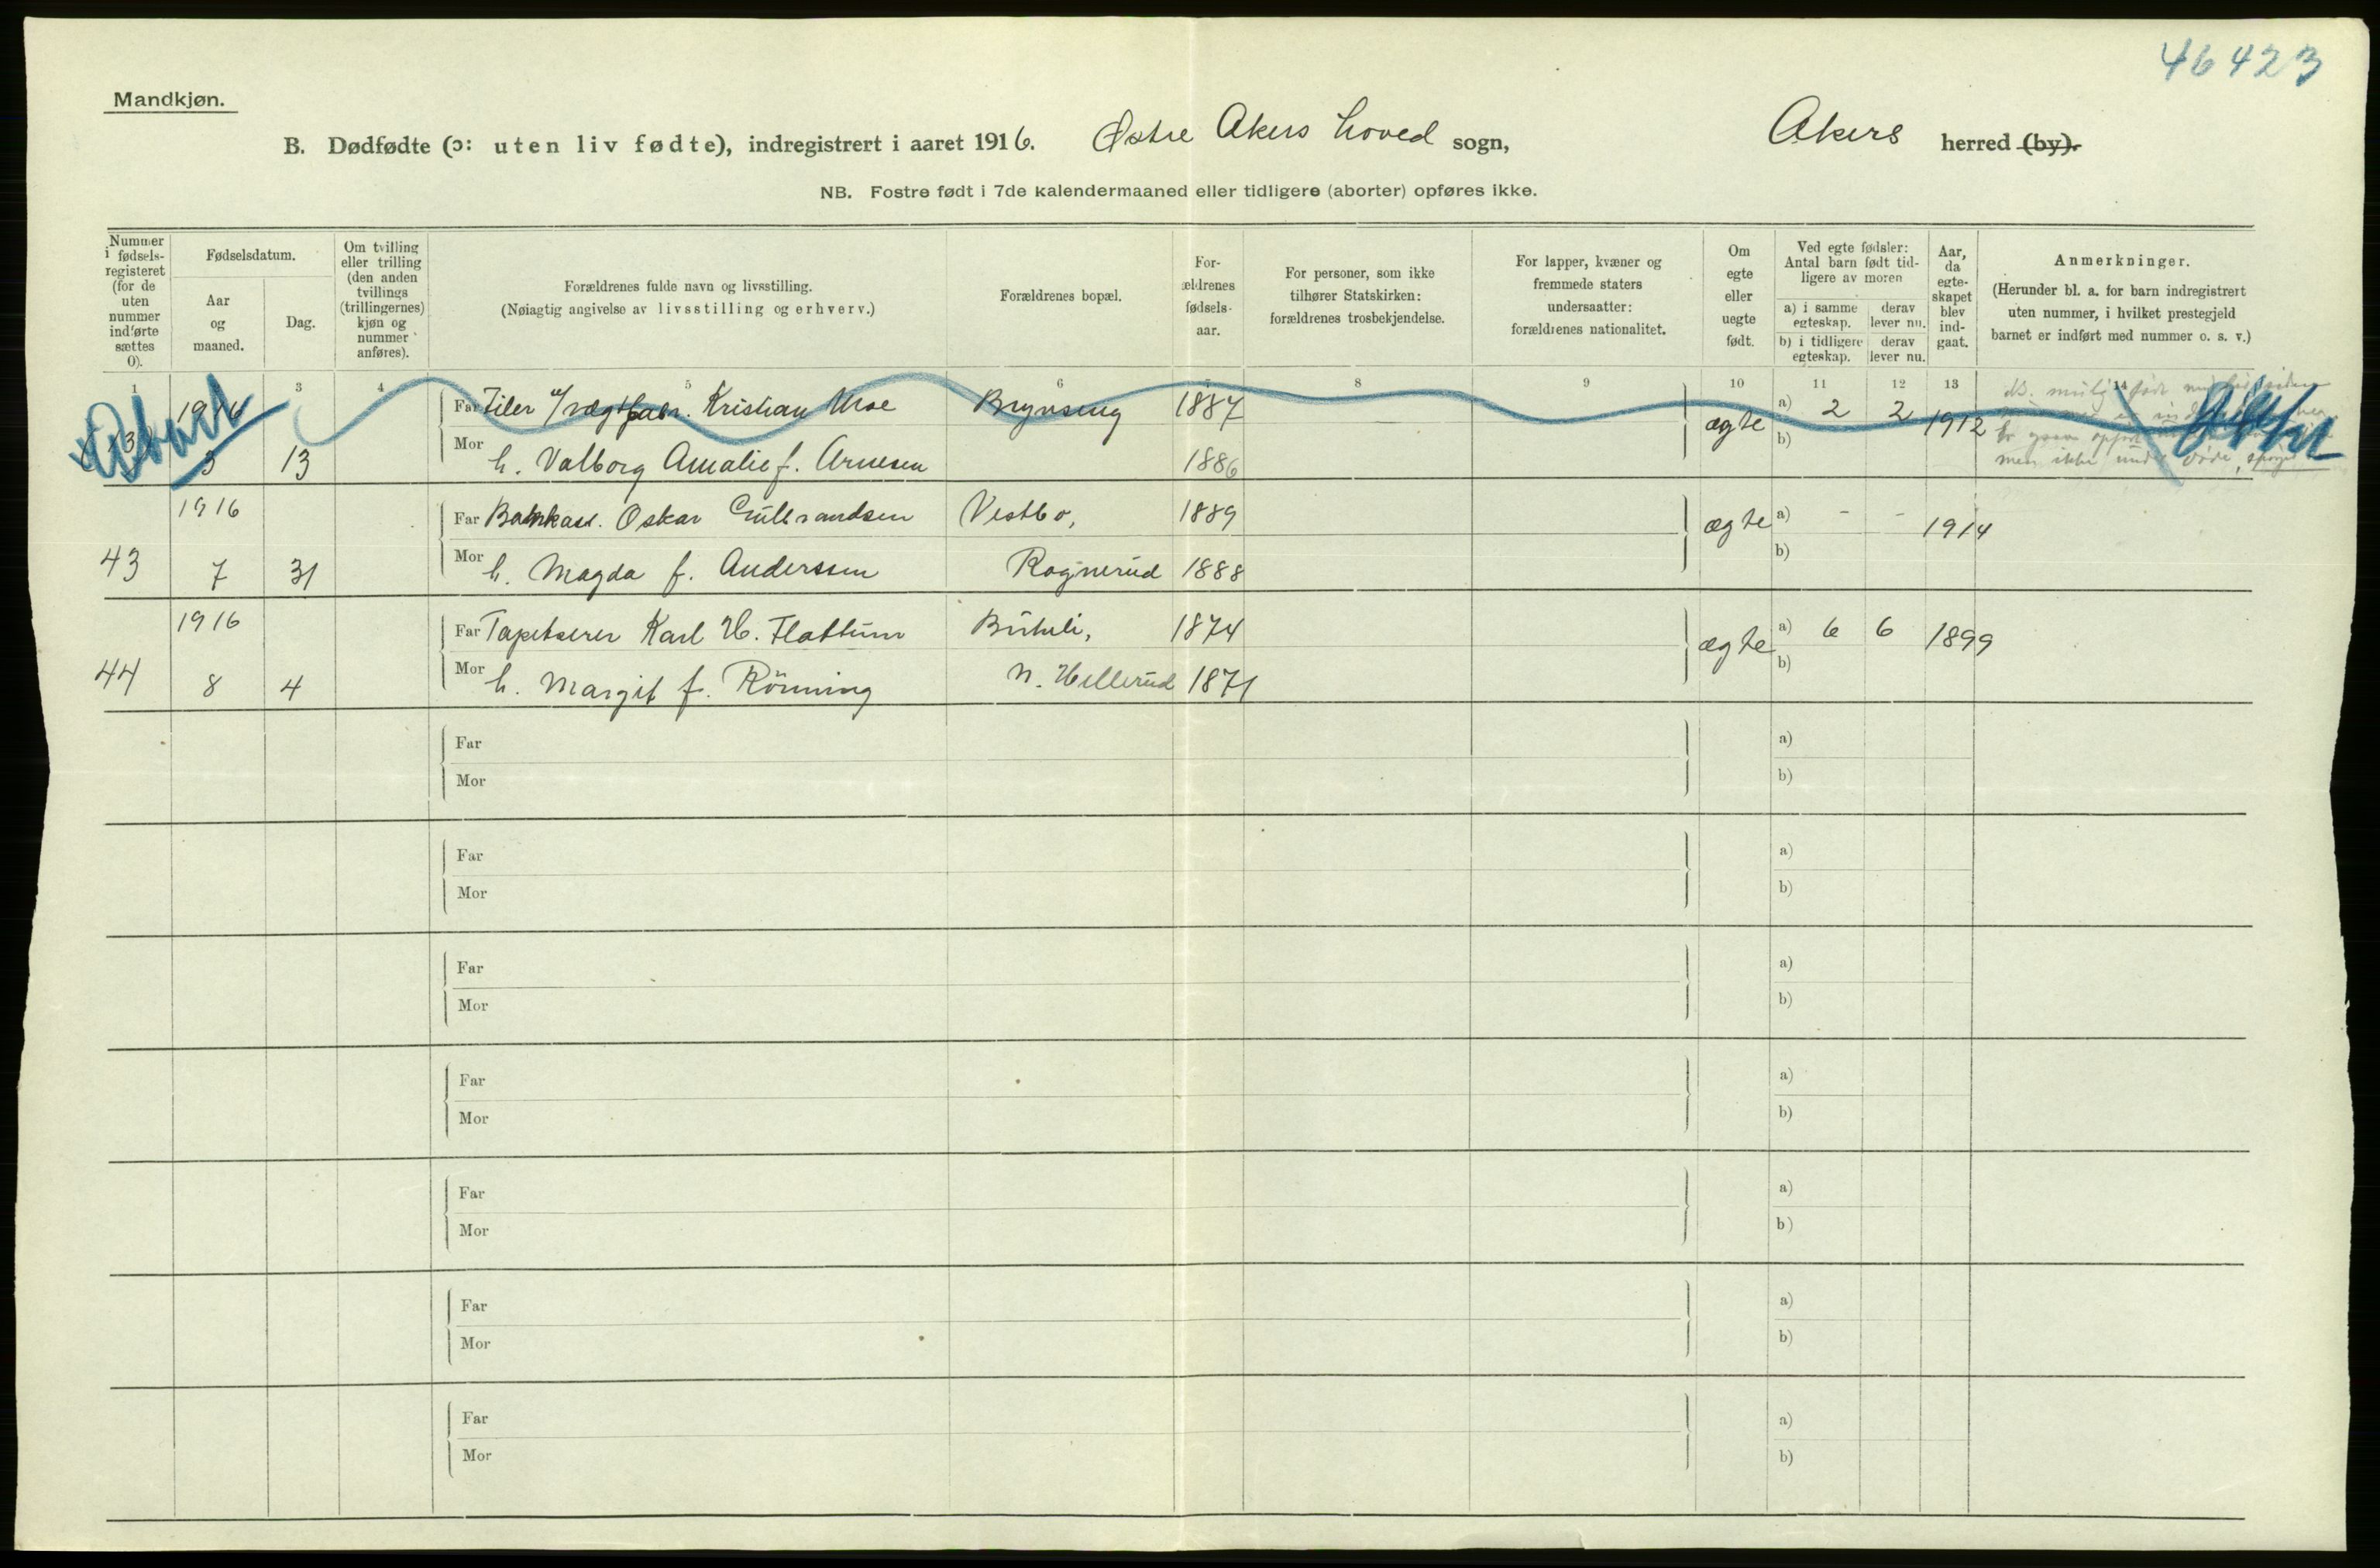 46423
Mandkjøn.
B. Dødfødte (ɔ: uten liv fødte), indregistrert i aaret 1916. Østre Akers hoved sogn, Akers herred (by).
NB. Fostre født i 7de kalendermaaned eller tidligere (aborter) opføres ikke.
Nummer
i fødsels-
registeret
(for de
uten
nummer
indførte
sættes
0).
Fødselsdatum.
Aar
og
maaned.
Dag.
Om tvilling
eller trilling
(den anden
tvillings
(trillingernes)
kjøn og
nummer
anføres).
Forældrenes fulde navn og livsstilling.
(Nøiagtig angivelse av livsstilling og erhverv.)
Forældrenes bopæl.
For-
ældrenes
fødsels-
aar.
For personer, som ikke
tilhører Statskirken:
forældrenes trosbekjendelse.
For lapper, kvæner og
fremmede staters
undersaatter:
forældrenes nationalitet.
Om
egte
eller
uegte
født.
Ved egte fødsler:
Antal barn født tid-
ligere av moren
a) i samme
egteskap.
derav
lever nu.
b) i tidligere
egteskap.
derav
lever nu.
Aar,
da
egte-
skapet
blev
ind-
gaat.
Anmerkninger.
(Herunder bl. a. for barn indregistrert
uten nummer, i hvilket prestegjeld
barnet er indført med nummer o. s. v.)
1 3 4 5 6 7 8 9 10 11 12 13 14
Abort
1916 Far Filer Kristian Moe Brynseng 1887 ægte a) 2 2 1912
3 13 Mor h. Valborg Amalie f. Arnesen 1886 b)
men ikke under døde
1916 Far Oskar Gulbrandsen Vestbo, 1889 ægte a) - - 1914
43 7 31 Mor h. Magda f. Anderssen Rognerud 1888 b)
1916 Far Tapetserer Karl H. Flattum 1874 ægte a) 6 6 1899
44 8 4 Mor h. Margit f. Rönning N. Hellerud 1871 b)
Far a)
Mor b)
Far a)
Mor b)
Far a)
Mor b)
Far a)
Mor b)
Far a)
Mor b)
Far a)
Mor b)
Far a)
Mor b)